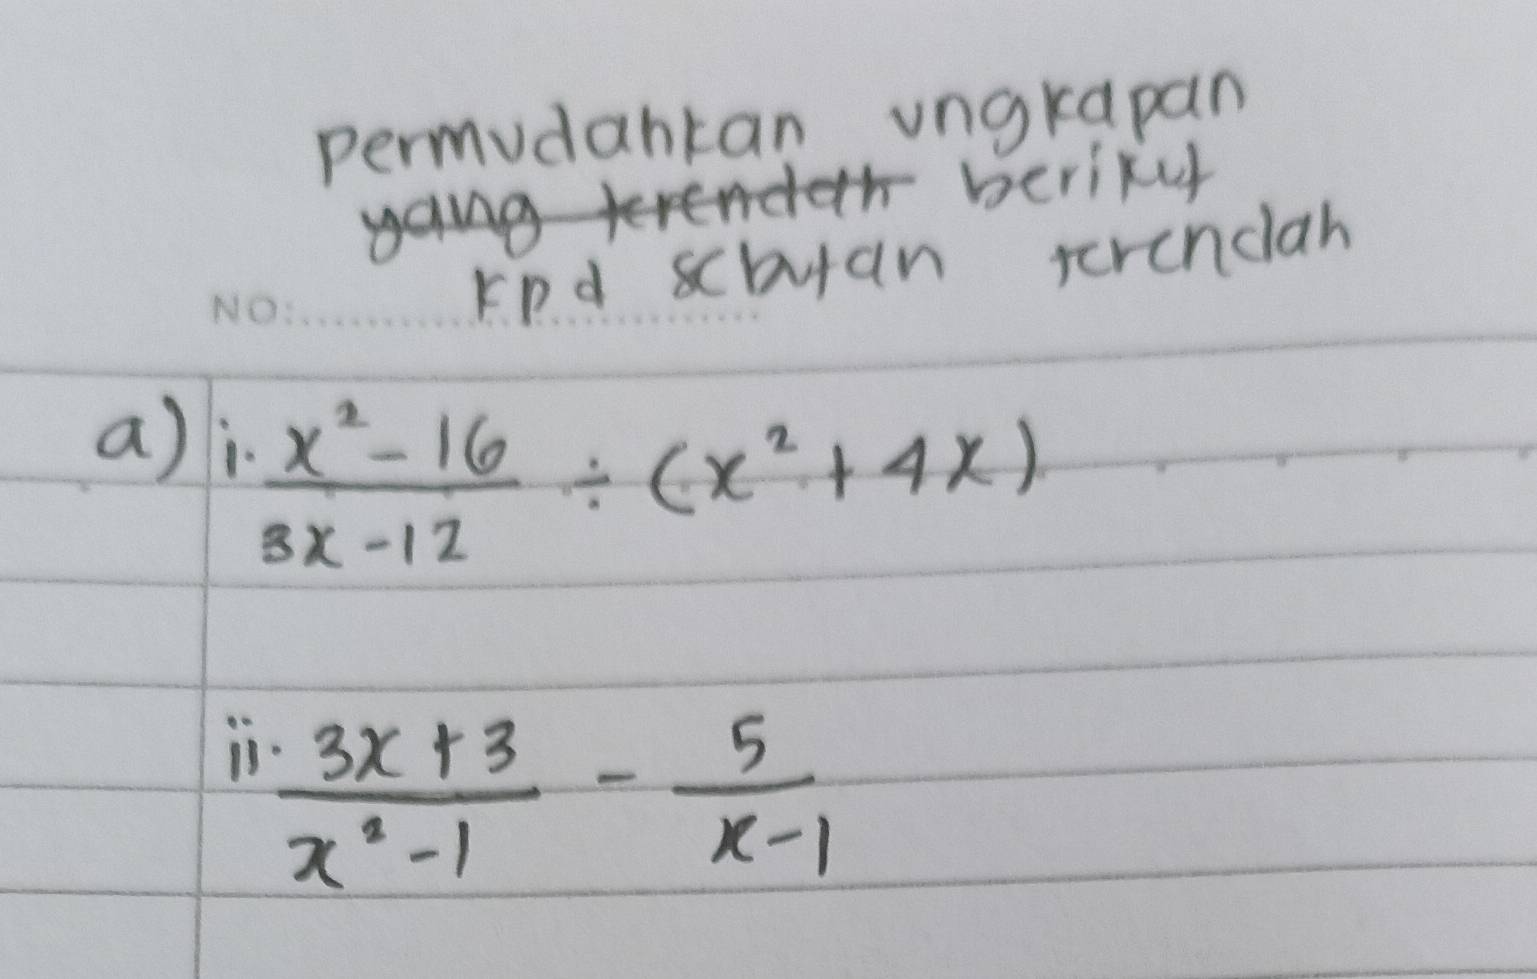 permudahkan ungkapan
yang terendah berikut
kpd sebutan terendah
NO:
a) i. x² - 16 / 3x - 12 ÷ (x² + 4x)
ii. 3x + 3 / x² - 1 - 5 / x - 1